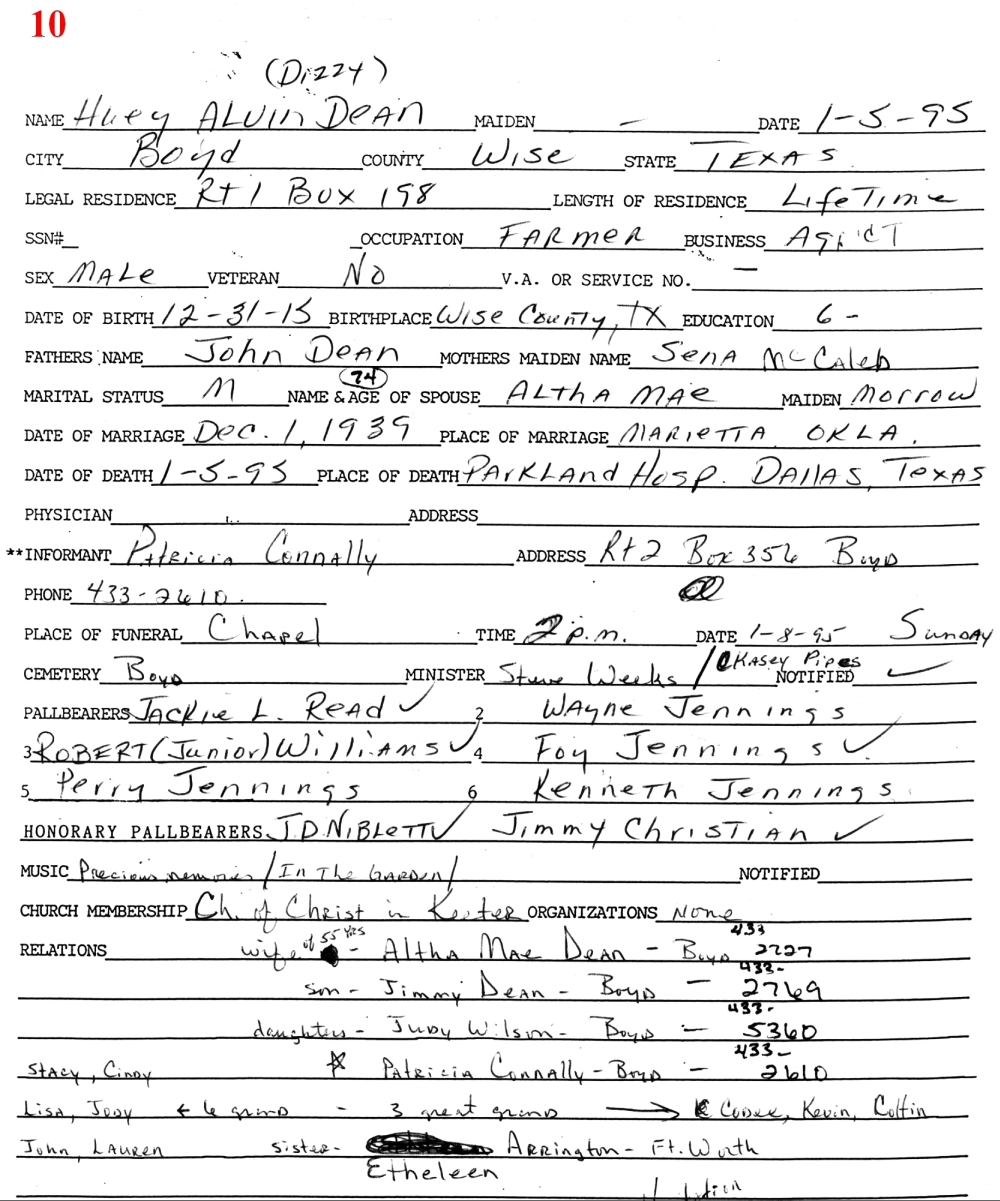 10
(Dizzy)
NAME Huey ALVin DEAN MAIDEN — DATE 1-5-95
CITY Boyd COUNTY Wise STATE TEXAS
LEGAL RESIDENCE Rt 1 Box 198 LENGTH OF RESIDENCE LifeTime
SSN# OCCUPATION FARMER BUSINESS
SEX MALe VETERAN No V.A. OR SERVICE NO. —
DATE OF BIRTH 12-31-15 BIRTHPLACE Wise County, TX EDUCATION 6 -
FATHERS NAME John Dean MOTHERS MAIDEN NAME SenA McCaleb
74
MARITAL STATUS M NAME & AGE OF SPOUSE ALthA MAe MAIDEN Morrow
DATE OF MARRIAGE Dec. 1, 1939 PLACE OF MARRIAGE MARIETTA OKLA.
DATE OF DEATH 1-5-95 PLACE OF DEATH PARKLAnd Hosp. DALLAS, TexAS
PHYSICIAN ADDRESS
**INFORMANT Patricia Connally ADDRESS Rt 2 Box 356 Boyd
PHONE 433-2610.
PLACE OF FUNERAL Chapel TIME 2 p.m. DATE 1-8-95 Sunday
CEMETERY Boyd MINISTER Steve Weeks / Kasey Pipes NOTIFIED ✓
PALLBEARERS JAckie L. READ ✓ 2 WAyne Jennings
3 ROBERT (Junior) WilliAMS ✓ 4 Foy Jennings ✓
5 Perry Jennings 6 Kenneth Jennings
HONORARY PALLBEARERS J.D. NiBLETT ✓ Jimmy ChristiAn ✓
MUSIC Precious memories / In The GARDEN / NOTIFIED
CHURCH MEMBERSHIP Ch. of Christ in Keeter ORGANIZATIONS None
RELATIONS wife of 55 yrs - Altha Mae Dean - Boyd 433 2727
son - Jimmy Dean - Boyd — 433- 2769
daughters - Judy Wilson - Boyd — 433- 5360
Stacy, Cindy * Patricia Connally - Boyd — 433- 2610
Lisa, Jody ← 6 grand - 3 great grand → Kevin, Coltin
John, Lauren sister - Arrington - Ft. Worth
Etheleen